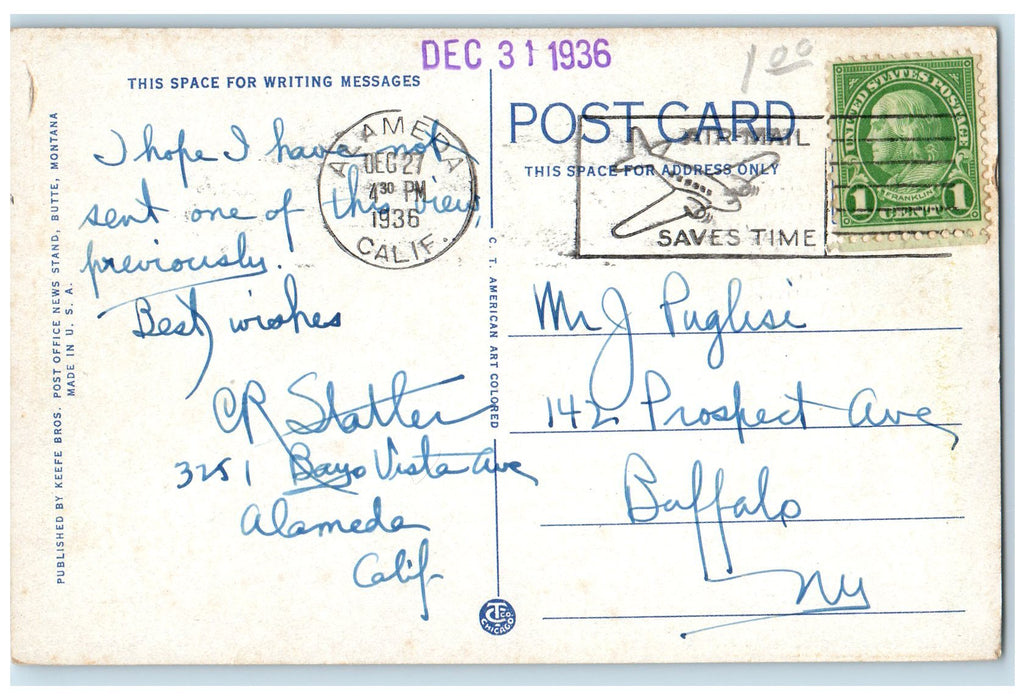 DEC 31 1936
1 00
THIS SPACE FOR WRITING MESSAGES
I hope I have not
sent one of this view,
previously.
Best wishes
CR Slatter
3251 Bayo Vista Ave
Alameda
Calif
ALAMEDA
DEC 27
4 30 PM
1936
CALIF.
PUBLISHED BY KEEFE BROS. POST OFFICE NEWS STAND, BUTTE, MONTANA
MADE IN U. S. A.
C. T. AMERICAN ART COLORED
CT CO. CHICAGO
POST CARD
THIS SPACE FOR ADDRESS ONLY
AIR-MAIL
SAVES TIME
UNITED STATES POSTAGE
FRANKLIN
1 1
Mr J Puglisi
142 Prospect Ave
Buffalo
NY